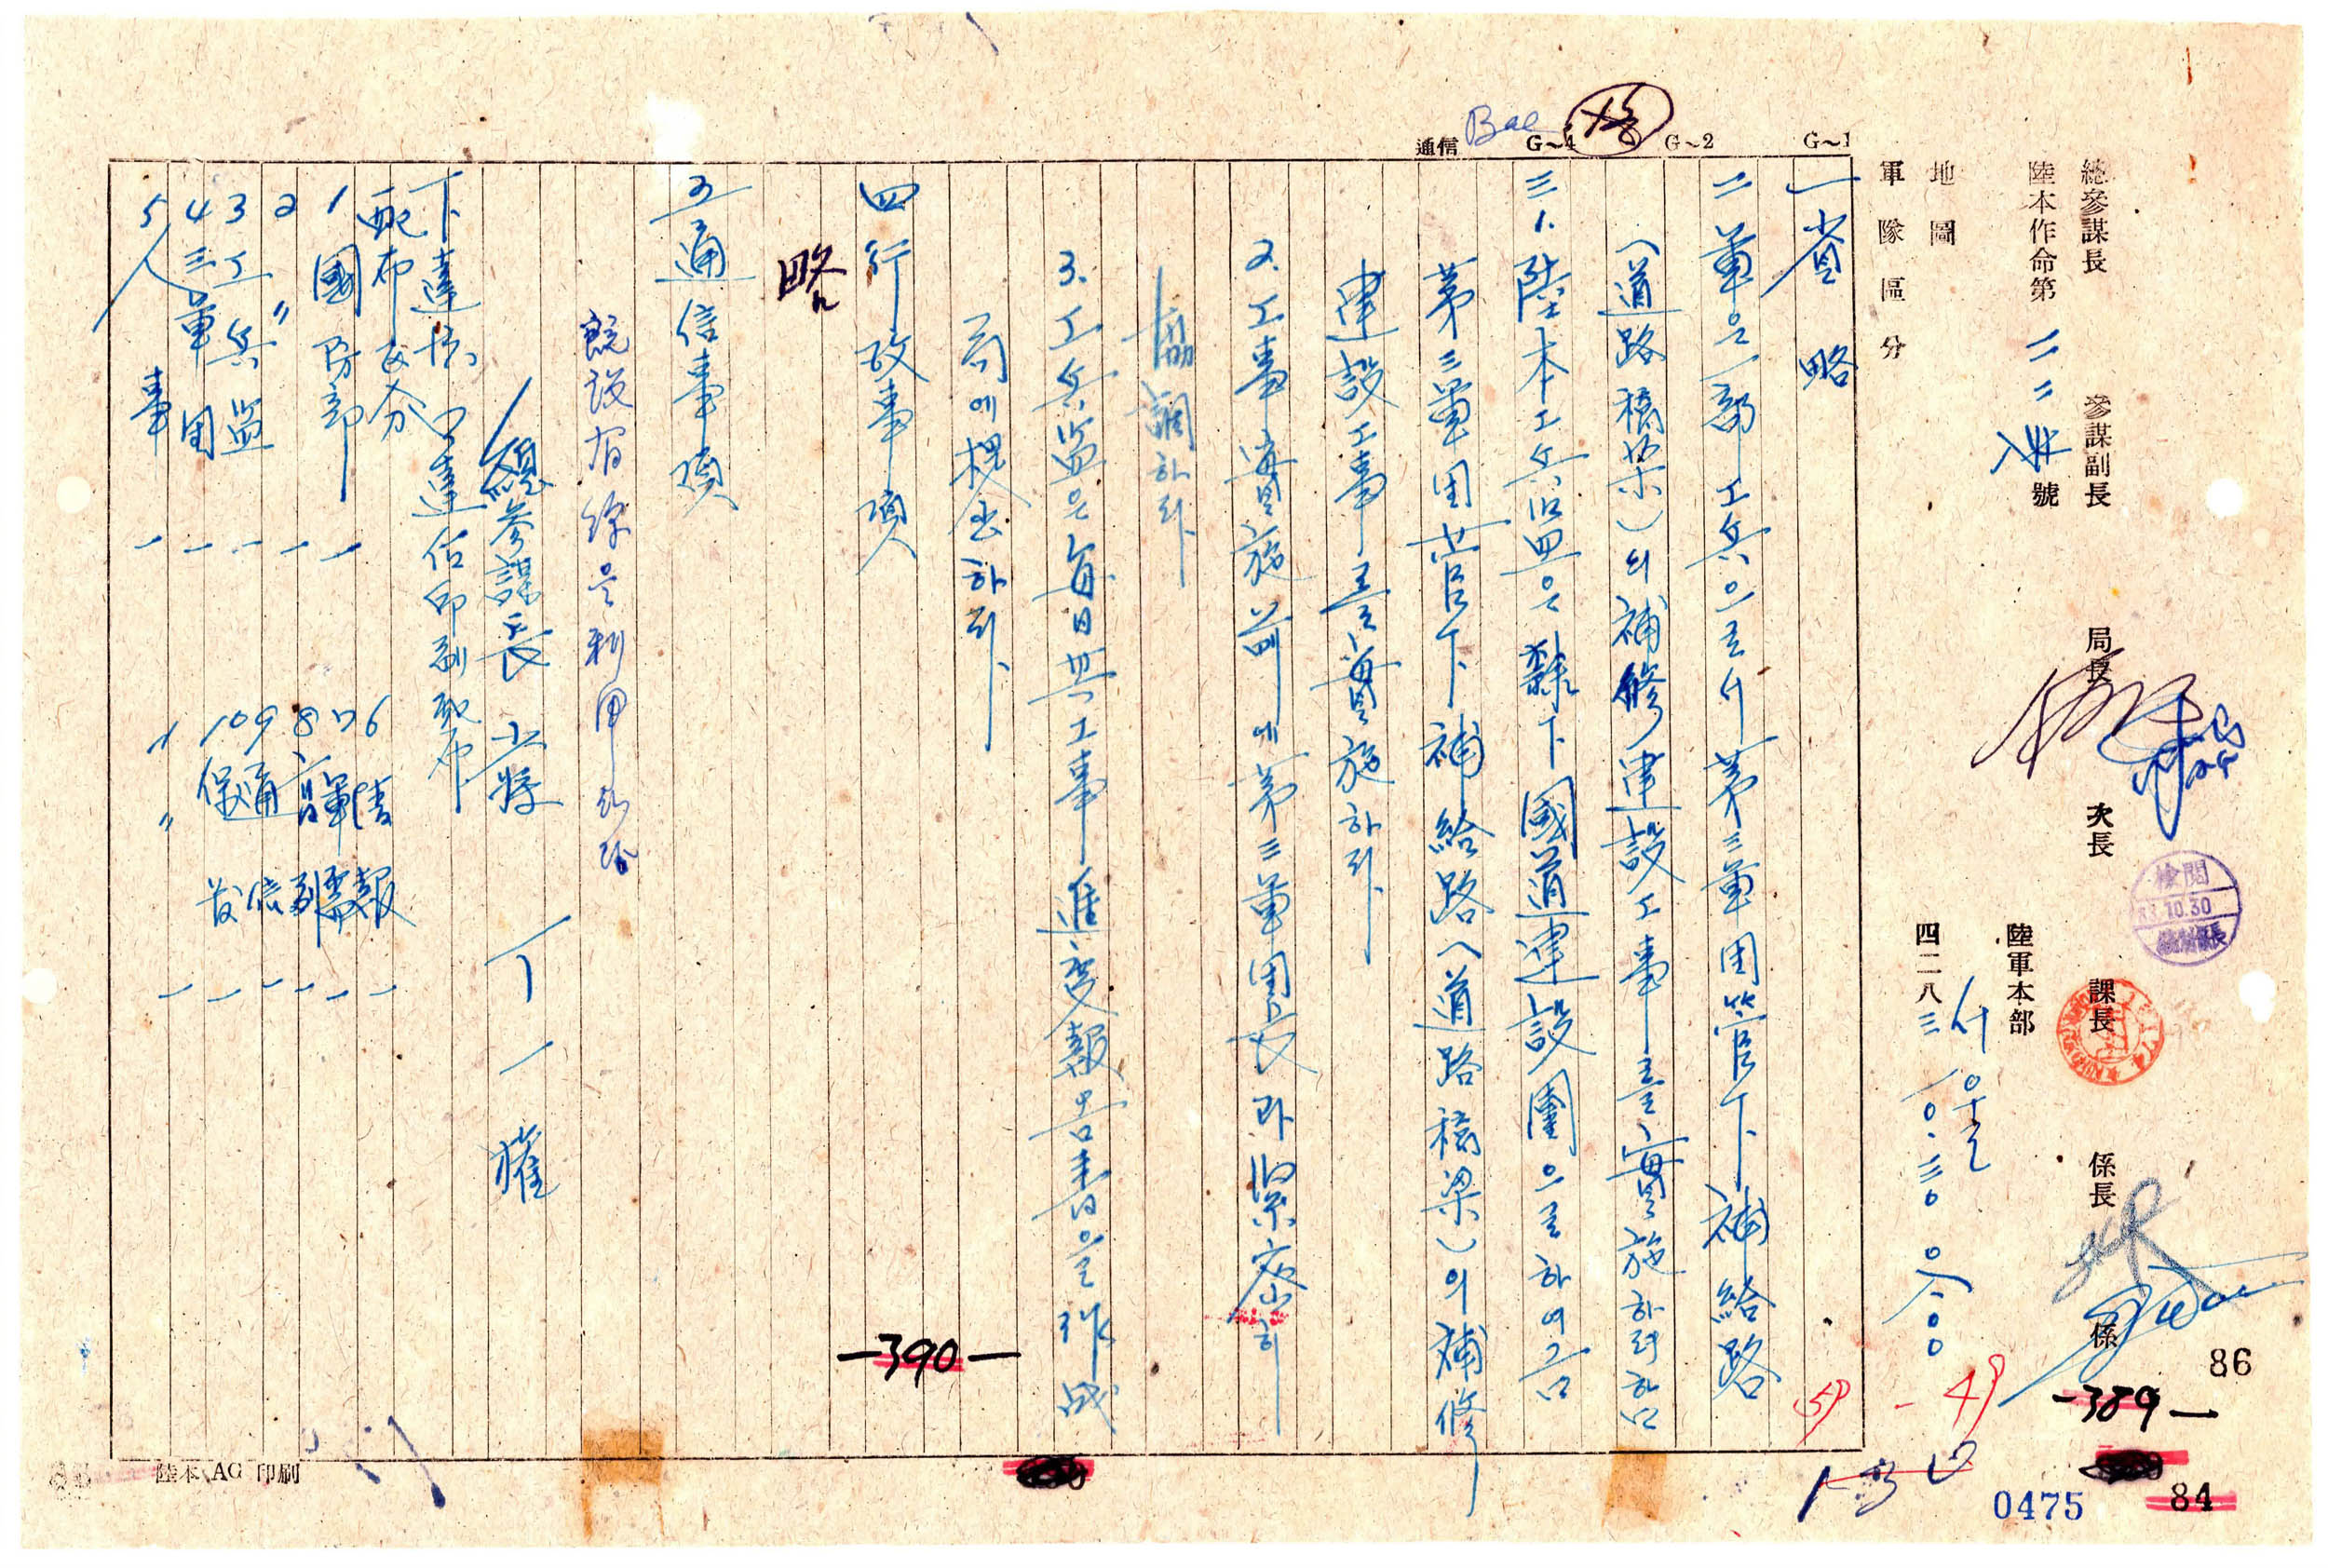 總參謀長 參謀副長 局長 次長 課長 係長 係
陸本作命第二二 號
陸軍本部
서울
地圖
四二八三 一〇.三〇 〇八〇〇
軍隊區分
G~1
G~2
G~4
通信
Bae
檢閱
83.10.30
一 省略
二 軍은 一部 工兵으로서 第三軍團管下 補給路
(道路橋梁)의 補修建設工事를 實施하려함
三 1. 陸本工兵監은 隷下 國道建設團으로 하여금
第三軍團管下 補給路(道路橋梁)의 補修
建設工事를 實施하라
2. 工事實施前에 第三軍團長과 緊密히
協調하라
3. 工兵監은 每日 其 工事進度報告書을 作戰
局에 提出하라
四 行政事項
略
五 通信事項
旣設有線을 利用
總參謀長 少將 丁一權
下達法 口達后印刷配布
配布區分
1 國防部 一
2 〃 一
3 工兵監 一
4 三軍團 一
5 人事 一
6 情報 一
7 軍需 一
8 一
9 通信 一
10 保 一
〃 一
-390-
陸本 AG 印刷
86
-389-
84
0475